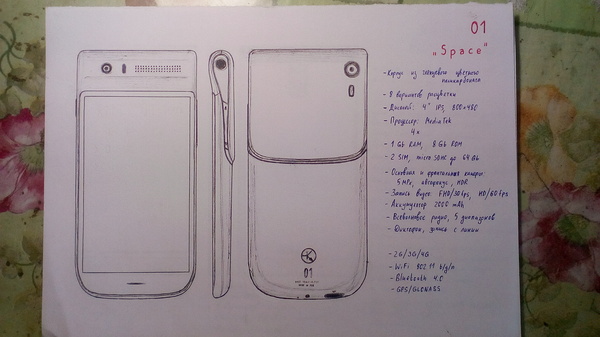 01
„Space"
- Корпус из глянцевого цветного
поликарбоната
- 8 вариантов расцветки
- Дисплей: 4" IPS, 800×480
- Процессор: MediaTek
4х
- 1 Gb RAM, 8 Gb ROM
- 2 SIM, micro SDHC до 64 Gb
- Основная и фронтальная камеры:
5 MPx, автофокус, HDR
- Запись видео: FHD/30fps, HD/60fps
- Аккумулятор 2000 mAh
- Всеволновое радио, 5 диапазонов
- Диктофон, запись с линии
- 2G/3G/4G
- WiFi 802.11 b/g/n
- Bluetooth 4.0
- GPS/GLONASS
01